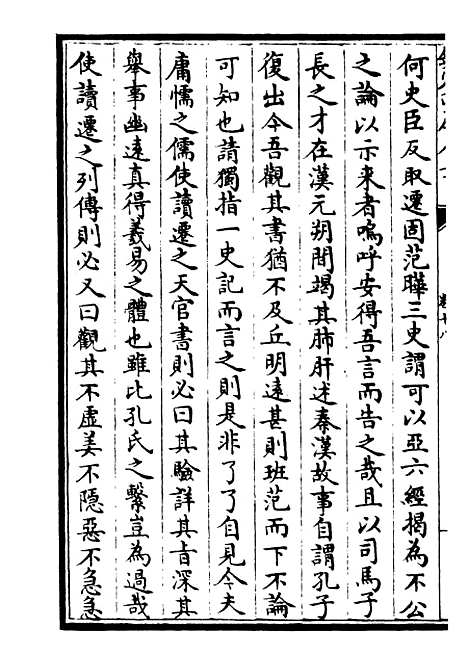 何史臣反取遷固范曄三史謂可以亞六經揭為不公
之論以示来者嗚呼安得吾言而告之哉且以司馬子
長之才在漢元朔間竭其肺肝述秦漢故事自謂孔子
復出今吾觀其書猶不及丘明遠甚則班范而下不論
可知也請獨指一史記而言之則是非了了自見今夫
庸懦之儒使讀遷之天官書則必曰其驗詳其旨深其
舉事幽遠真得羲易之體也雖比孔氏之繫豈為過哉
使讀遷之列傳則必又曰觀其不虛美不隱惡不急急